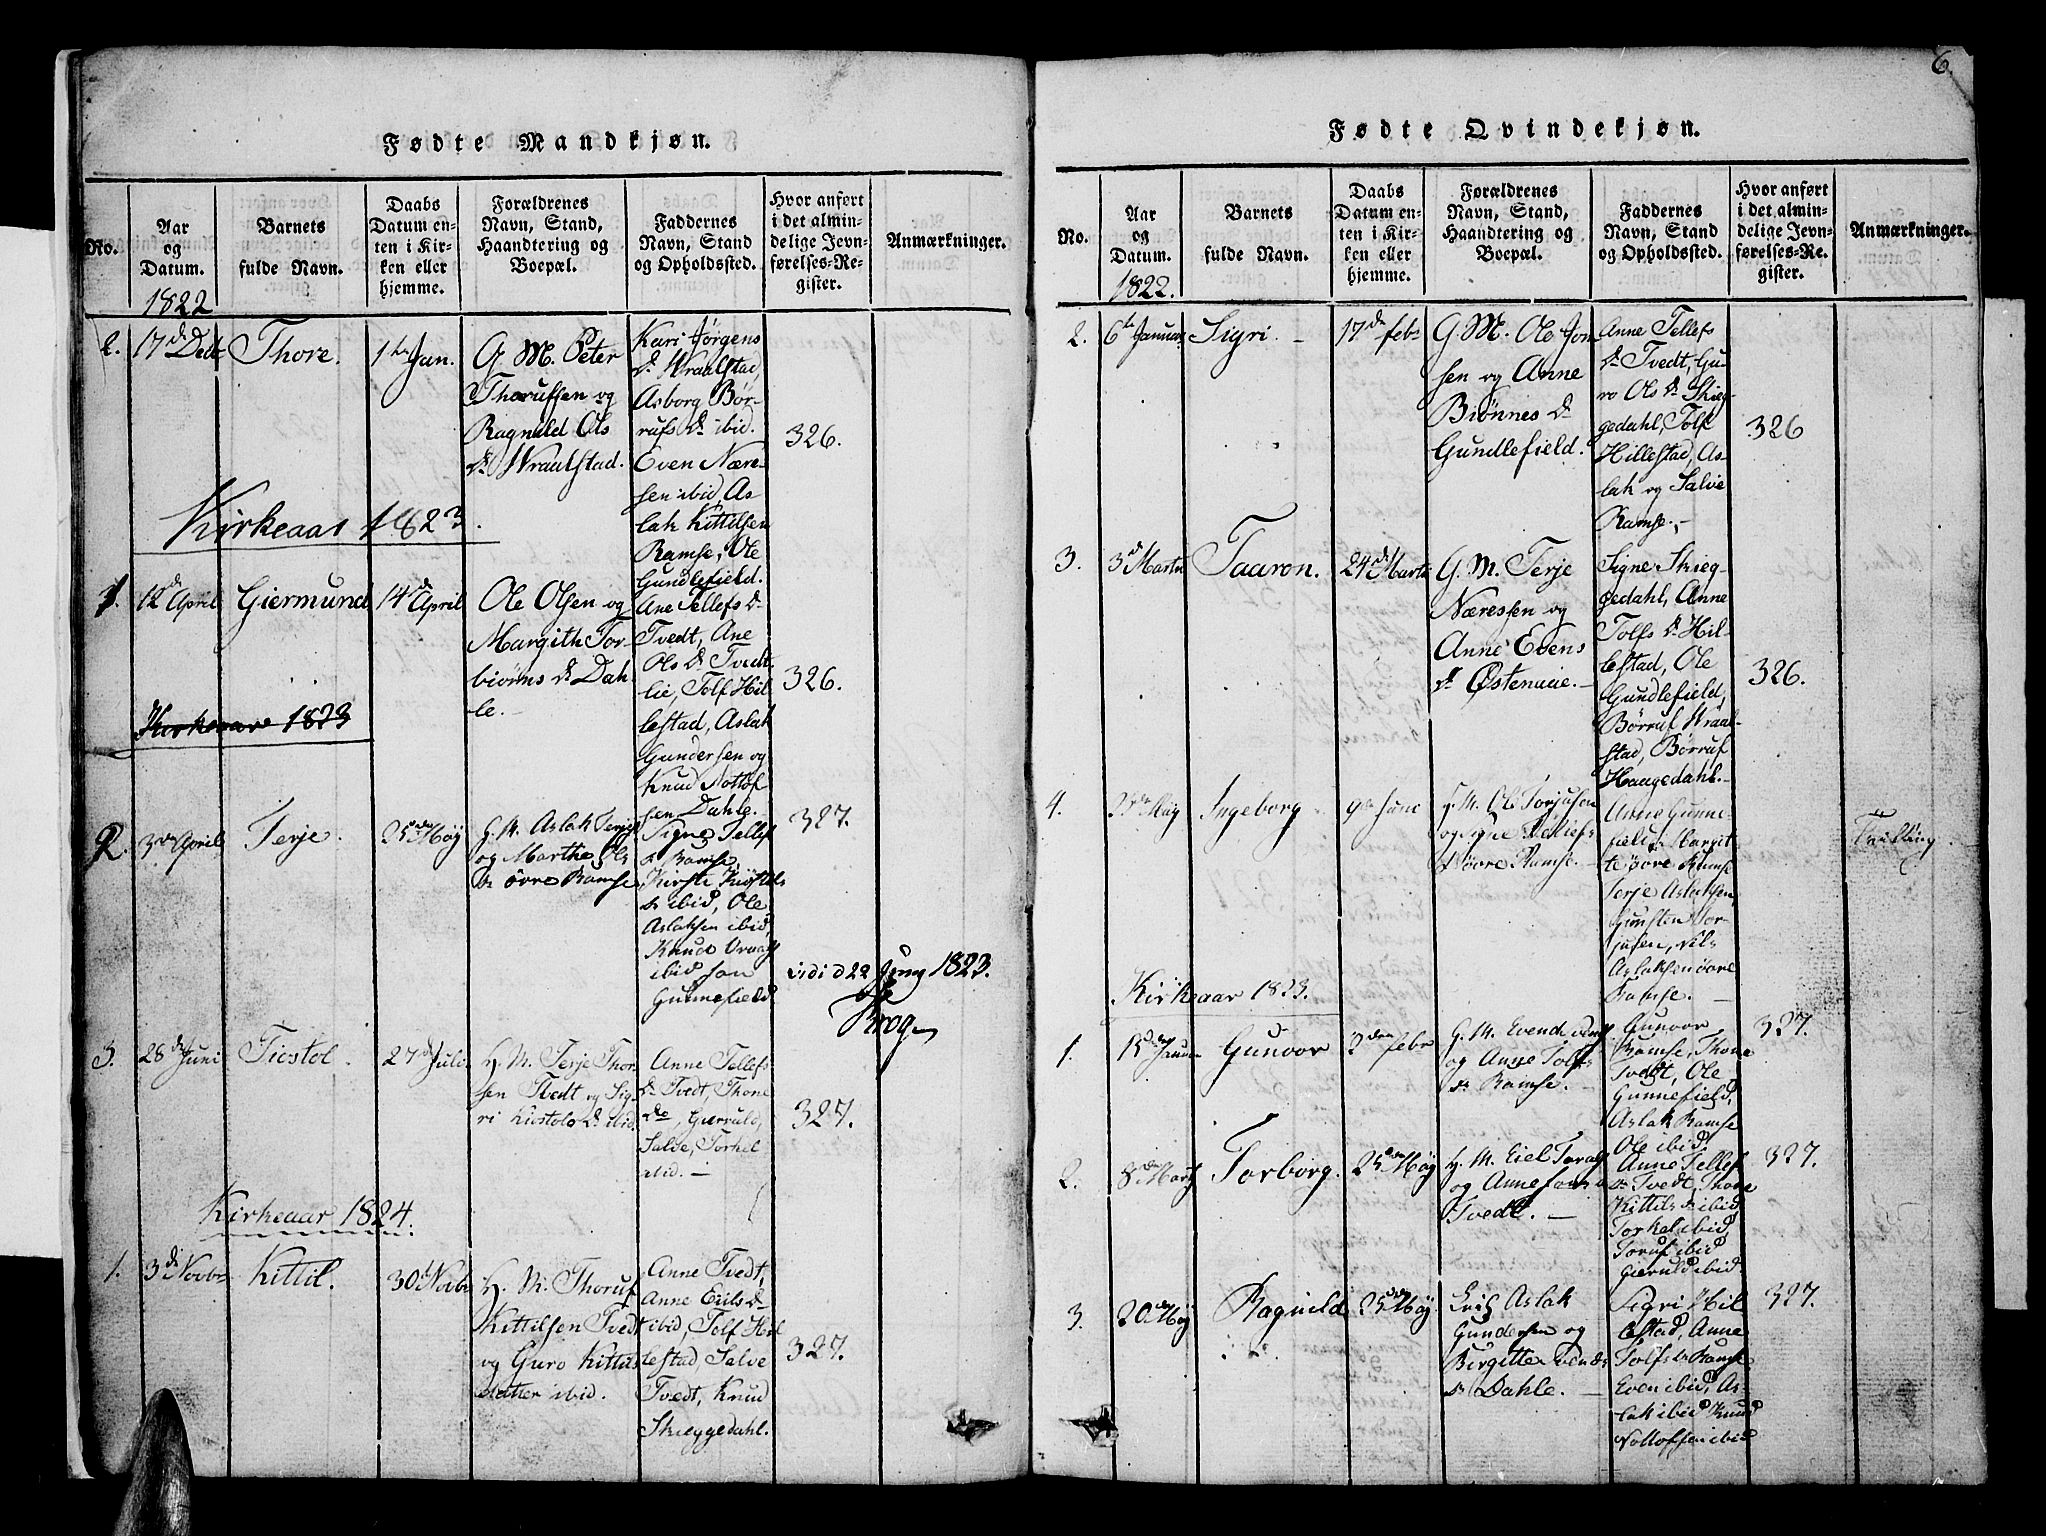 6.
Fødte Mandkjøn.
No.
Aar
og
Datum.
1822
Barnets
fulde Navn.
Daabs
Datum en-
ten i Kir-
ken eller
hjemme.
Forældrenes
Navn, Stand,
Haandtering og
Boepæl.
Faddernes
Navn, Stand
og Opholdssted.
Hvor anført
i det almin-
delige Jevn-
førelses-Re-
gister.
Anmærkninger.
2.
17de Decbr
Thore.
1ste Jan.
G. M. Peter
Thorufsen og
Ragnild Ols
Dr. Wraalstad.
Kari Jørgens
Dr. Wraalstad,
Asborg Bør-
rufs Dr. ibid.
Even Nære-
sen ibid, As-
lak Kittilsen
Ramse, Ole
Gundlefield.
326.
Kirkeaar 1823.
1.
12de April
Giermund
14de April
Ole Olsen og
Margith Tor-
biørns Dr. Dah-
le.
Ane Tellefs Dr.
Tvedt, Ane
Ols Dr. Tvedt-
lie, Tolf Hil-
lestad, Aslak
Gundersen og
Knud Nottof
sen Dahle.
326.
Kirkeaar 1823
2.
3die April
Terje.
25de May
G. M. Aslak Terjes
og Marthe Ols
Dr. øvre Ramse
Signe Tellefs
Dr. Ramse,
Kirsti
Dr. ibid, Ole
Aslaksen ibid,
Knud
ibid
Gunnefield
327.
vidi d 22 Juny 1823.
Krog
3.
28de Juni
Tiostol.
27de Juli
G. M. Terje Thor-
sen Tvedt og Sig-
ri Kiostols Dr. ibid.
Anne Tellefs
Dr. Tvedt, Thone
do, Gierruld,
Salve, Torkel
ibid.
327.
Kirkeaar 1824.
1.
3de Novbr
Kittil.
30te Novbr
G. M. Thoruf
Kittilsen Tvedt
og Guro Kittils
datter ibid.
Anne Tvedt,
Anne Erils Dr.
ibid, Tolf Hil-
lestad, Salve
Tvedt, Knud
Skieggedahl.
327.
Fødte Qvindekjøn.
No.
Aar
og
Datum.
1822.
Barnets
fulde Navn.
Daabs
Datum en-
ten i Kir-
ken eller
hjemme.
Forældrenes
Navn, Stand,
Haandtering og
Boepæl.
Faddernes
Navn, Stand
og Opholdssted.
Hvor anført
i det almin-
delige Jevn-
førelses-Re-
gister.
Anmærkninger.
2.
6te Januar
Sigri.
17de febr
G. M. Ole Jon-
sen og Anne
Biønnes Dr.
Gundlefield.
Anne Tellefs
Dr. Tvedt, Gu-
ro Ols Dr. Skieg-
gedahl, Tolf
Hillestad, As-
lak og Salve
Ramse.
326
3.
3de Martii
Taaron.
24de Martii
G. M. Terje
Næresen og
Anne Evens
Dr. Østenuie.
Signe Skieg-
gedahl, Anne
Tolfs Dr. Hil-
lestad, Ole
Gundlefield,
Børruf Wraal-
stad, Børruf
Haugedahl.
326.
4.
May
Ingeborg
9de Juni
G. M. Ole Torjusen
og Signe Tellefs
Dr. øvre Ramse.
Anne Gunne-
field, Margit
øvre Ramse
Terje Aslaksen
Gunsten Tor-
jusen, Nils
Aslaksen øvre
Ramse.
Tvilling.
Kirkeaar 1823.
1.
15de Januar
Gunvor
2den febr
G. M. Evend
og Anne Tolfs
Dr. Ramse.
Gunvor
Ramse, Thone
Tvedt, Ole
Gunnefield,
Aslak Ramse
Ole ibid.
327.
2.
8de Marts
Torborg.
25de May
G. M. Eiel
og Anne
Tvedt.
Anne Tellefs
Dr. Tvedt, Thone
Kittils Dr. ibid,
Torkel ibid,
Toruf ibid
Gieruld ibid.
327.
3.
20de May
Ragnild
25de May
Aslak
Gundersen og
Birgitte
Dr. Dahle.
Sigri Hil-
lestad, Anne
Tolfs Dr. Ramse
Even ibid, As-
lak ibid Knud
Nottofsen ibid
327.